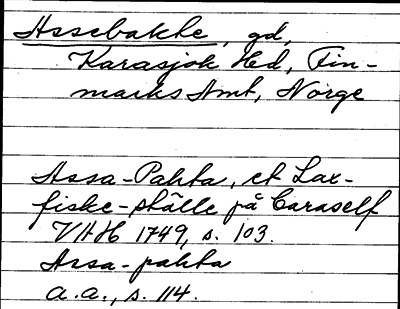 Assebakte, gd,
Karasjok Hed, Fin-
marks Amt, Norge
Assa-Pahta, et Lax-
fiske-ställe på Caraself
VHH 1749, s. 103.
Assa-pahta
a.a., s. 114.